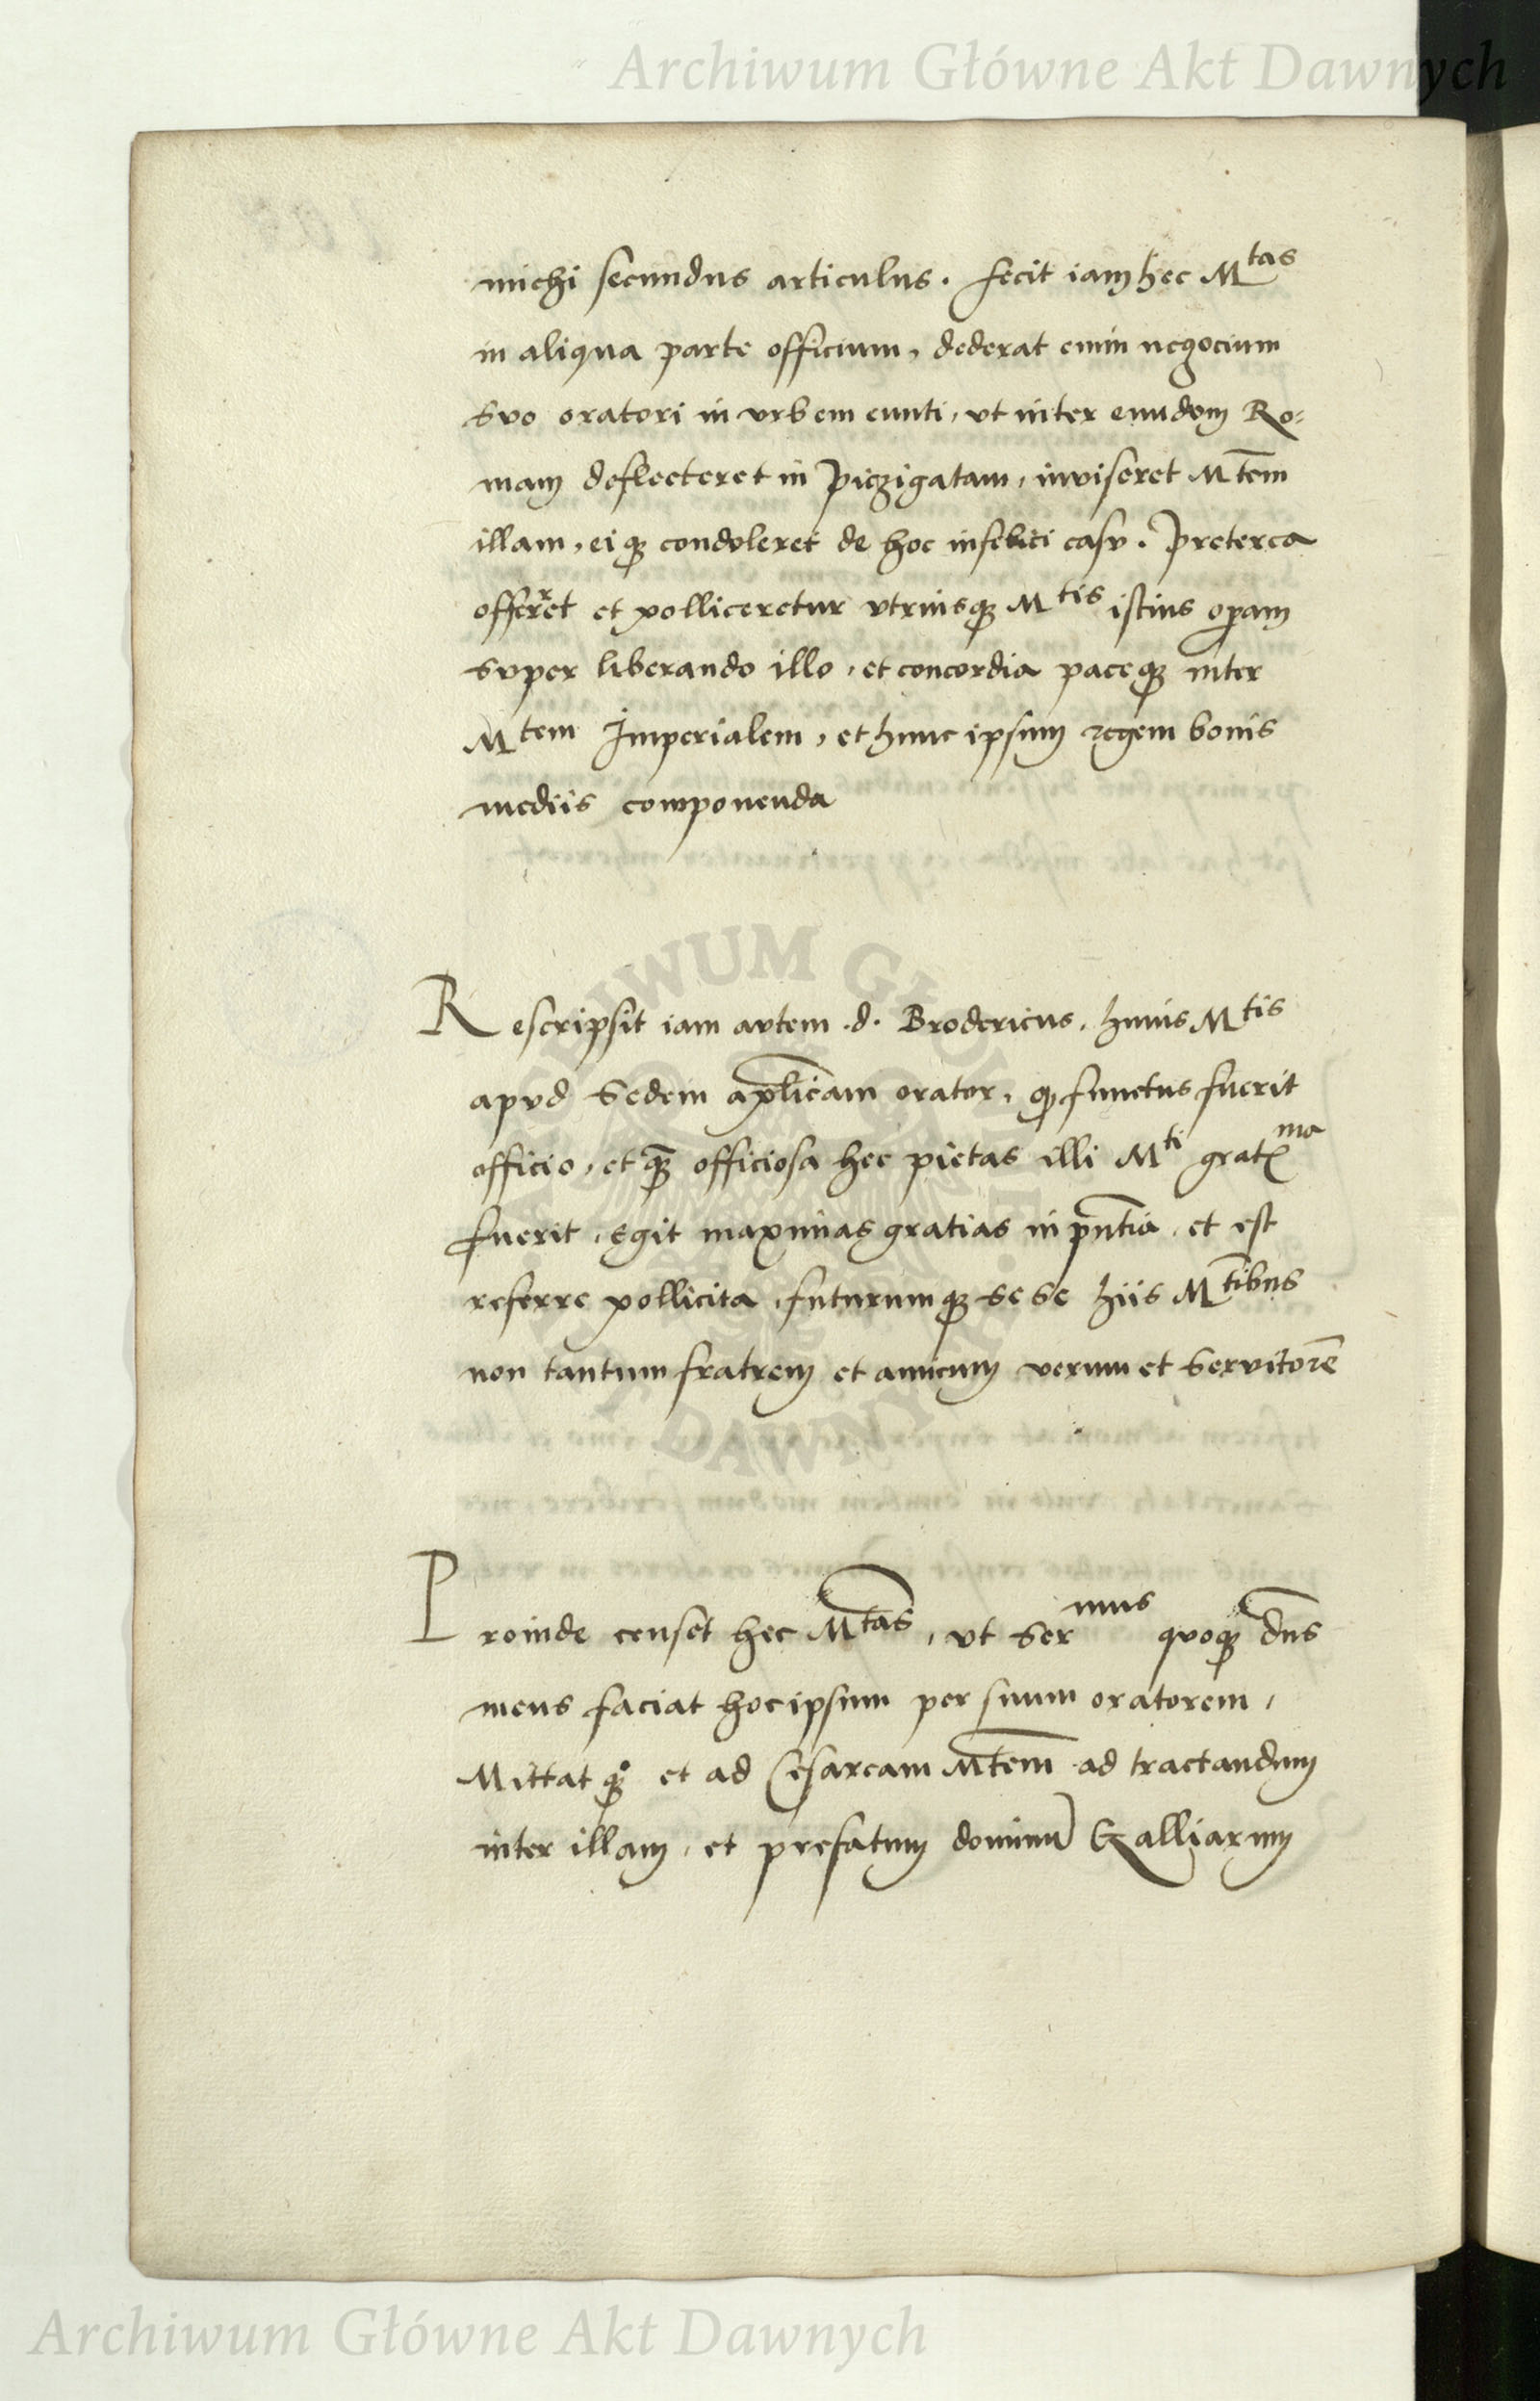 Archiwum Główne Akt Dawnych
michi secundus articulus. fecit iam hec Mtas
in aliqua parte officium, dederat enim negocium
suo oratori in vrbem eunti, vt inter eundem Ro:
mam deflecteret in Piczigatam, inviseret Mtem
illam, ei q condoleret de hoc infelici casu. Preterea
offerret et polliceretur vtriusq Mtis istius opam
super liberando illo, et concordia paceq inter
Mtem Imperialem, et hunc ipsum regem bonis
mediis componenda
Rescripsit iam autem .d. Brodericus, huius Mtis
apud Sedem aplicam orator, q functus fuerit
officio, et q officiosa hec pietas illi Mti gratma
fuerit, egit maximas gratias in pntia, et est
referre pollicita, futurumq sese hiis Mtibus
non tantum fratrem et amicum verum et servitore
Proinde censet hec Mtas, vt Sermus quoq dns
meus faciat hoc ipsum per suum oratorem,
Mittat q et ad Cesaream Mtem ad tractandum
inter illam, et prefatum dominu Galliarum
Archiwum Główne Akt Dawnych